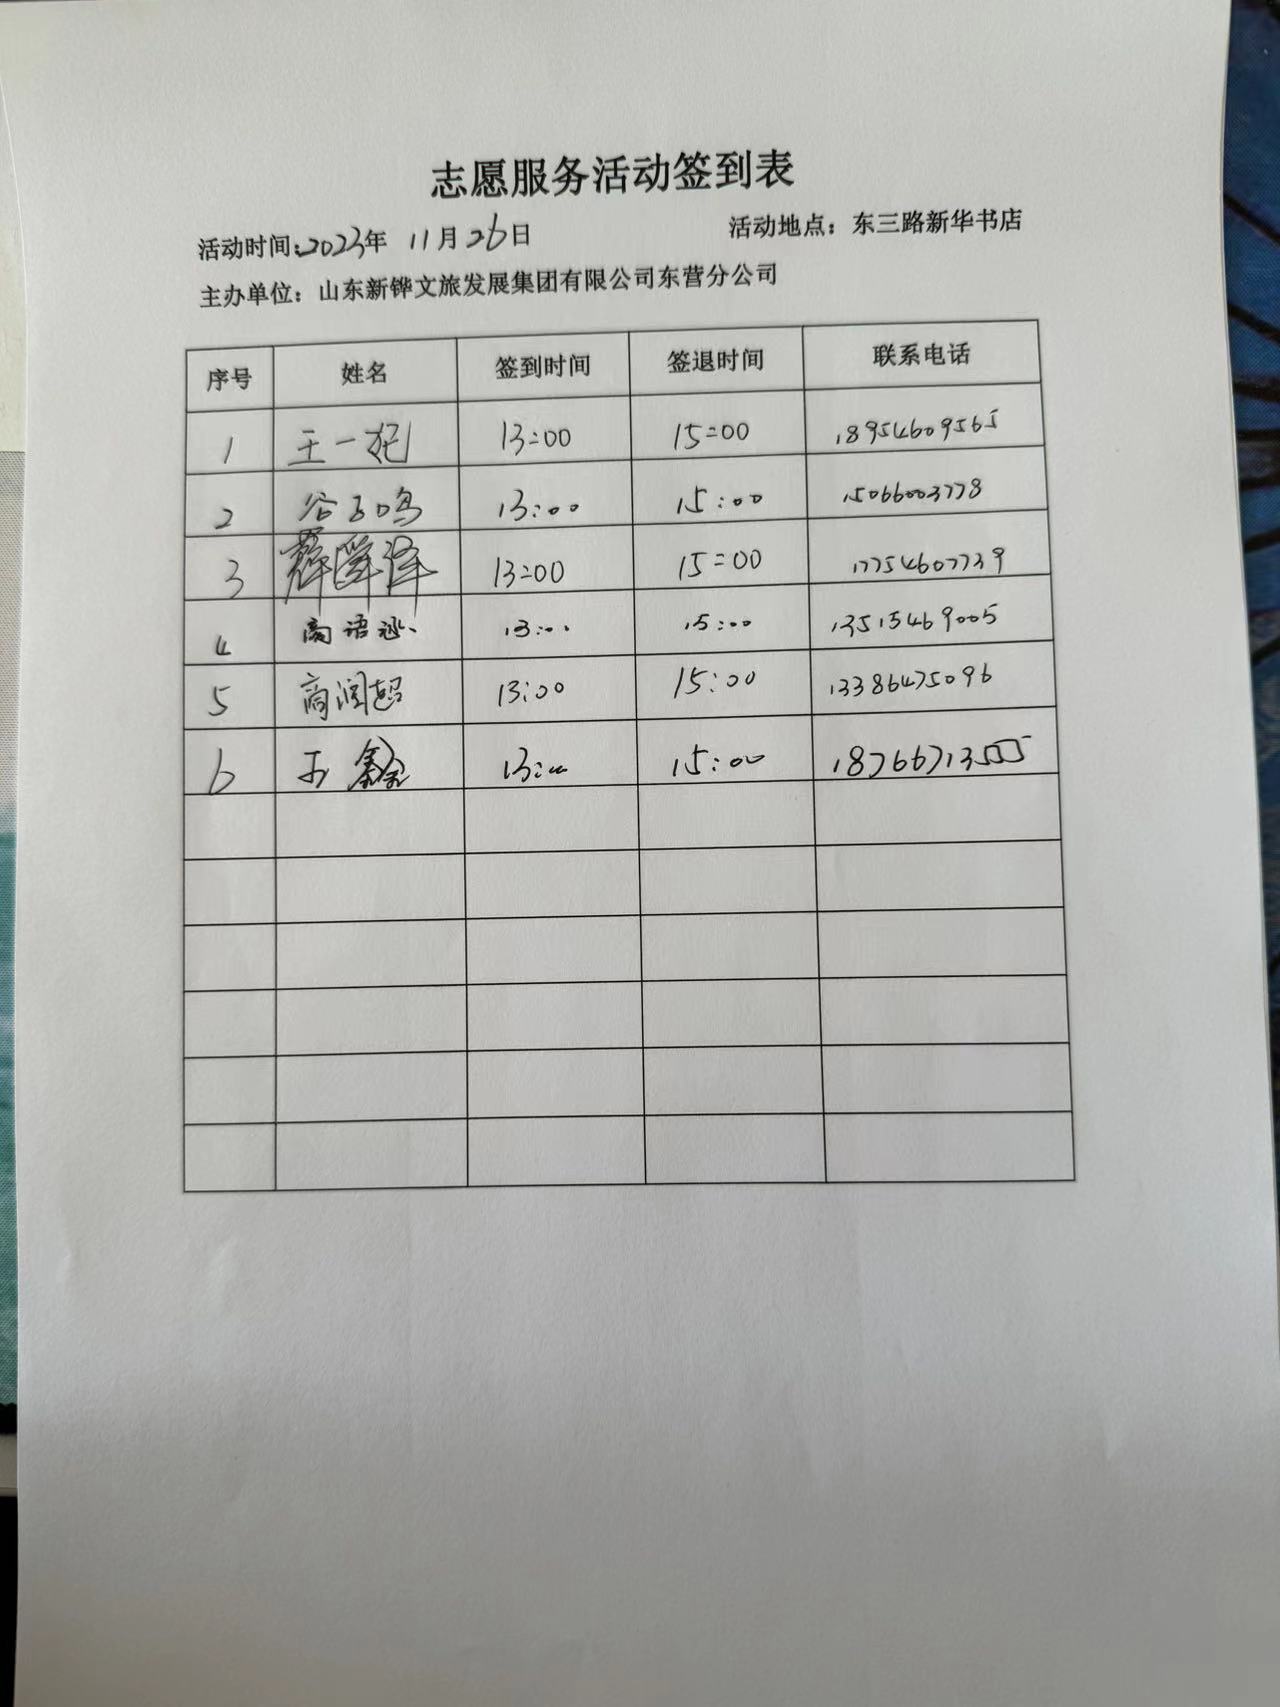 志愿服务活动签到表
活动时间:2023年 11月26日 活动地点：东三路新华书店
主办单位：山东新铧文旅发展集团有限公司东营分公司
序号 姓名 签到时间 签退时间 联系电话
1 王一 13:00 15:00 18954609565
2 谷子鸣 13:00 15:00 15066003778
3 薛 泽 13:00 15:00 17754607739
4 高语 13:00 15:00 13515469005
5 商润超 13:00 15:00 13386475096
6 王鑫 13:00 15:00 18766713555